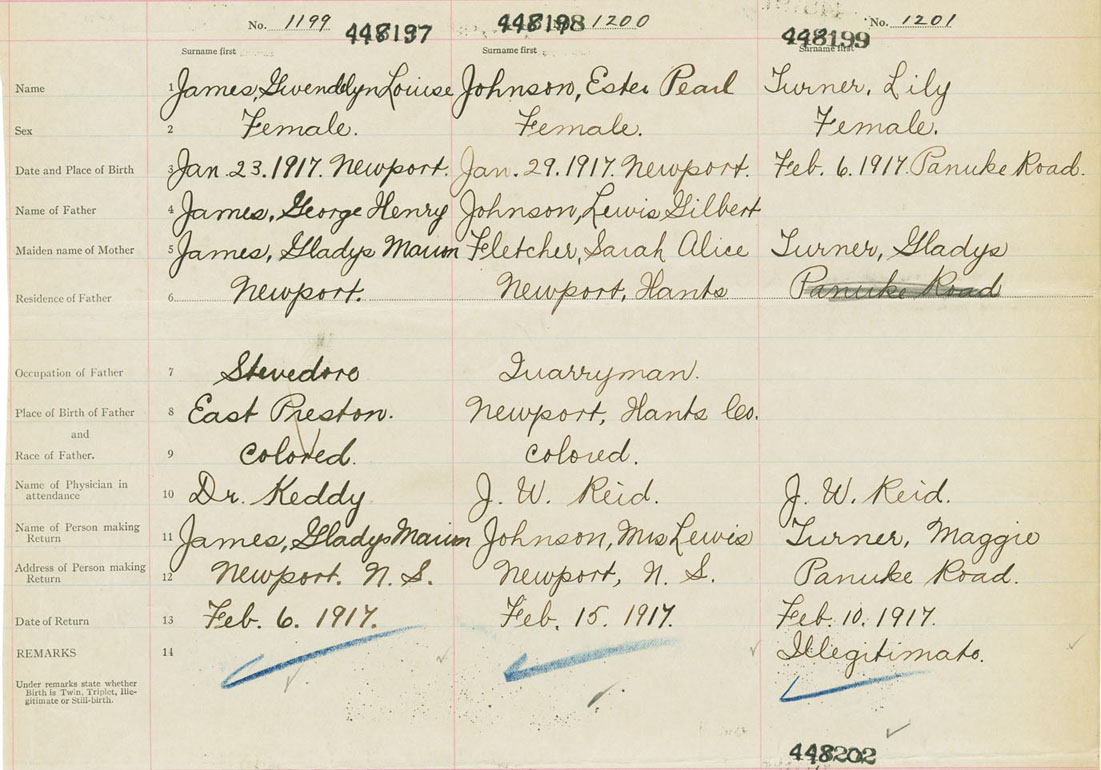 No. 1199 448197 448198 1200 No. 1201
448199
Surname first Surname first Surname first
Name 1 James, Gwendolyn Louise Johnson, Ester Pearl Turner, Lily
Sex 2 Female. Female. Female.
Date and Place of Birth 3 Jan. 23. 1917. Newport. Jan. 29. 1917. Newport. Feb. 6. 1917. Panuke Road.
Name of Father 4 James, George Henry Johnson, Lewis Gilbert
Maiden name of Mother 5 James, Gladys Marion Fletcher, Sarah Alice Turner, Gladys
Residence of Father 6 Newport. Newport, Hants Panuke Road
Occupation of Father 7 Stevedore Quarryman.
Place of Birth of Father 8 East Preston. Newport, Hants Co.
and
Race of Father. 9 colored. colored.
Name of Physician in
attendance 10 Dr. Keddy J. W. Reid. J. W. Reid.
Name of Person making
Return 11 James, Gladys Marion Johnson, Mrs Lewis Turner, Maggie
Address of Person making
Return 12 Newport. N. S. Newport, N. S. Panuke Road.
Date of Return 13 Feb. 6. 1917. Feb. 15. 1917. Feb. 10. 1917.
REMARKS 14 Illegitimate.
Under remarks state whether
Birth is Twin, Triplet, Ille-
gitimate or Still-birth.
448202